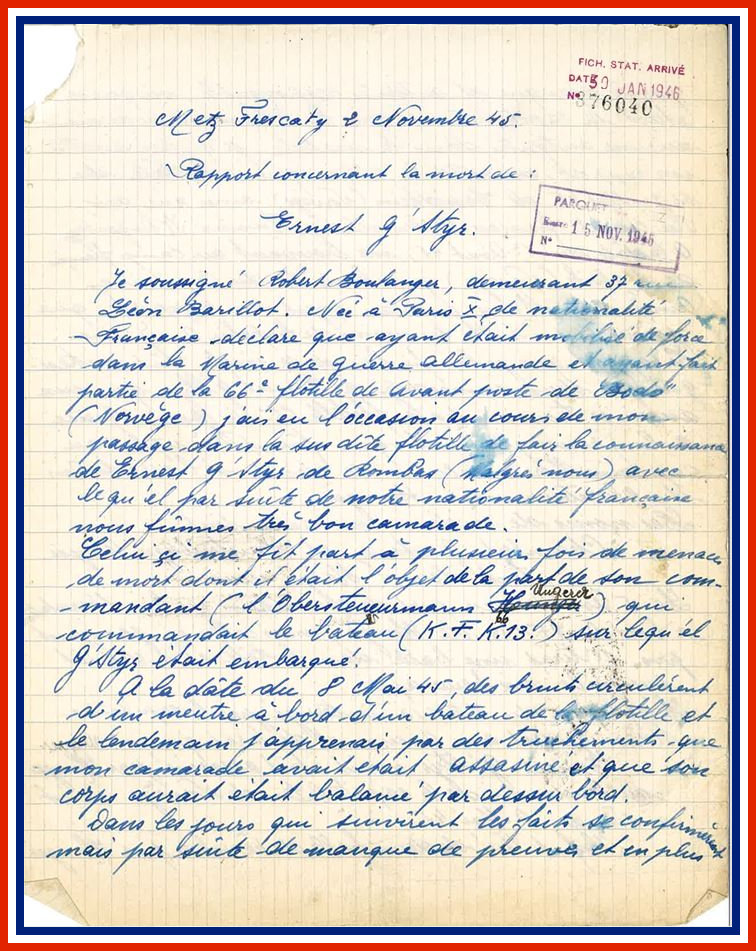 FICH. STAT. ARRIVÉ
DATE 30 JAN 1946
N° 376040
Metz Frescaty 2 Novembre 45.
Rapport concernant la mort de :
PARQUET
15 NOV. 1945
N°
Ernest G'Styr.
Je soussigné Robert Boulanger, demeurant 37 rue
Léon Barillot. Neé à Paris X, de nationalité
Française déclare que ayant était mobilisé de force
dans la Marine de guerre allemande et ayant fait
partie de la 66e flotille de avant poste de "Bodö"
(Norvège) j'ais eu l'occasion au cours de mon
passage dans la sus dite flotille de fair la connaissance
de Ernest G'Styr de Rombas (malgrés nous) avec
lequ'el par suite de notre nationalité française
nous fûmes très bon camarade.
Celui çi me fit part à plusieur fois de menaces
de mort dont il était l'objet de la part de son com-
-mandant (l'Obersteueurmann Ungerer) qui
66
commandait le bateau (K.F.K.13.) sur lequ'el
G'Styr était embarqué.
A la dâte du 8 Mai 45, des bruits circulèrent
d'un meutre à bord d'un bateau de la flotille et
le lendemain j'apprenais par des truchements que
mon camarade avait etait assasiné et que son
corps aurait etait balancé par dessur bord.
Dans les jours qui suivirent les faits se confirmèrent
mais par suite de manque de preuves et en plus